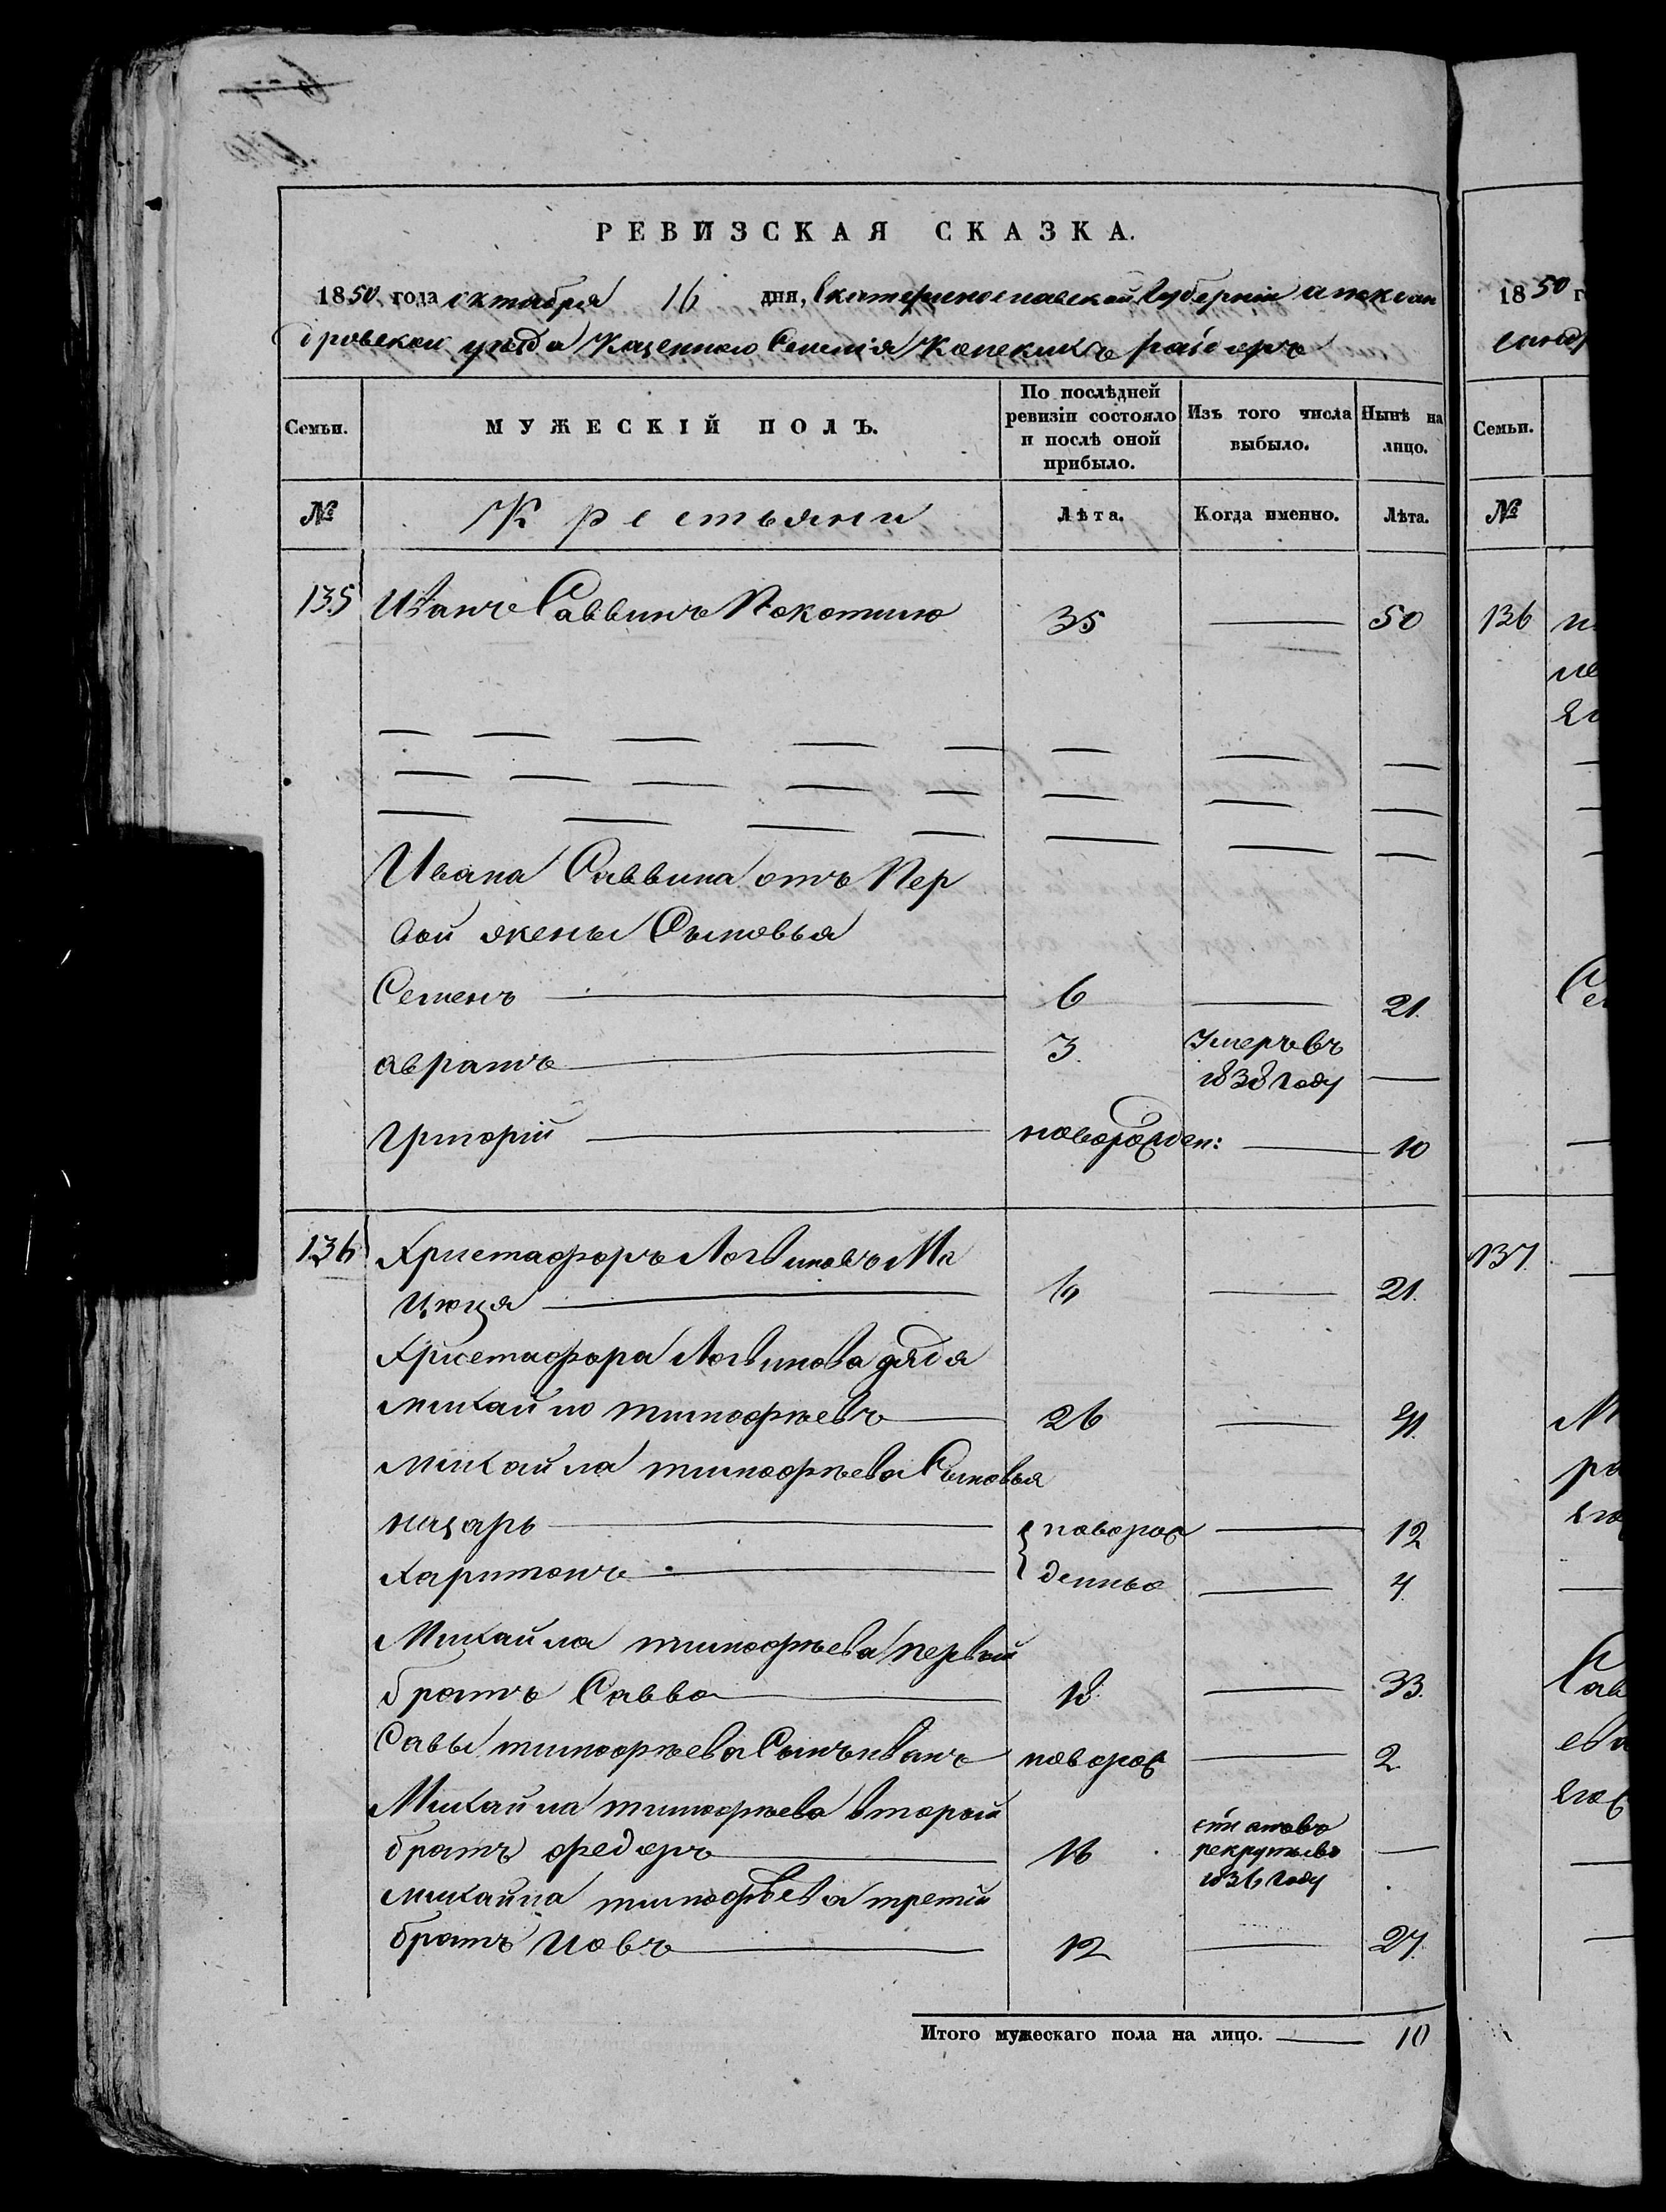 РЕВИЗСКАЯ СКАЗКА.
1850 года октября 16 дня, Екатеринославской Губерніи алексан
дровскаи уезда Казенного Селенія Конскихъ раздоръ
Семьи.
МУЖЕСКІЙ ПОЛЪ.
По послѣдней ревизіи состояло и послѣ оной прибыло.
Изъ того числа выбыло.
Нынѣ на лицо.
№
Крестьяни
Лѣта.
Когда именно.
Лѣта.
135 Иванъ Саввинъ Покотило 35 50
Ивана Саввина отъ Пер
вой жены Сыновья
Семенъ 6 21.
авратъ 3. Умеръ въ
1838 Году
Григорій новорожден: 10
136 Христафоръ Логвиновъ Ма
цюця 6 21.
Христафора Логвинова дядя
михайло тимофѣевъ 26 41.
михайла тимофѣева Сыновья
назаръ новорож 12
харитонъ денныя 4
Михайла тимофѣева первый
братъ Савва 18 33.
Савы тимофѣева Сынъ иванъ новорож 2
Михайла тимофѣева второй
братъ федоръ 16 рекруты въ
1836 Году
михайла тимофѣева третій
братъ иовъ 12 27.
Итого мужескаго пола на лицо. 10
1850 г
Семьи.
№
136
137